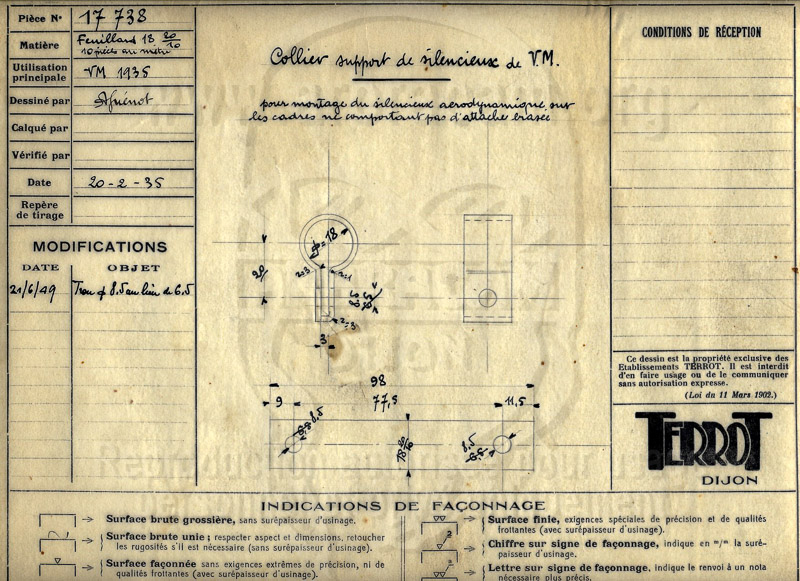 Pièce N° 17 738
Matière Feuillard 18 20/10
10 pièces au mètre
Utilisation
principale VM 1935
Dessiné par
Calqué par
Vérifié par
Date 20-2-35
Repère
de tirage
MODIFICATIONS
DATE OBJET
21/6/49 Trou φ 8.5 au lieu de 6.5
Collier support de silencieux de V.M.
pour montage du silencieux aerodynamique sur
les cadres ne comportant pas d'attache brasée
φ=18
20
r=3
r=3
3
98
9 77,5 11,5
8,5
8,5
CONDITIONS DE RÉCEPTION
Ce dessin est la propriété exclusive des
Etablissements TERROT. Il est interdit
d'en faire usage ou de le communiquer
sans autorisation expresse.
(Loi du 11 Mars 1902.)
TERROT
DIJON
INDICATIONS DE FAÇONNAGE
Surface brute grossière, sans surépaisseur d'usinage.
Surface brute unie ; respecter aspect et dimensions, retoucher
les rugosités s'il est nécessaire (sans surépaisseur d'usinage).
Surface façonnée sans exigences extrêmes de précision, ni de
qualités frottantes (avec surépaisseur d'usinage).
Surface finie, exigences spéciales de précision et de qualités
frottantes (avec surépaisseur d'usinage).
2
Chiffre sur signe de façonnage, indique en m/m la suré-
paisseur d'usinage.
Lettre sur signe de façonnage, indique le renvoi à un nota
nécessaire plus précis.